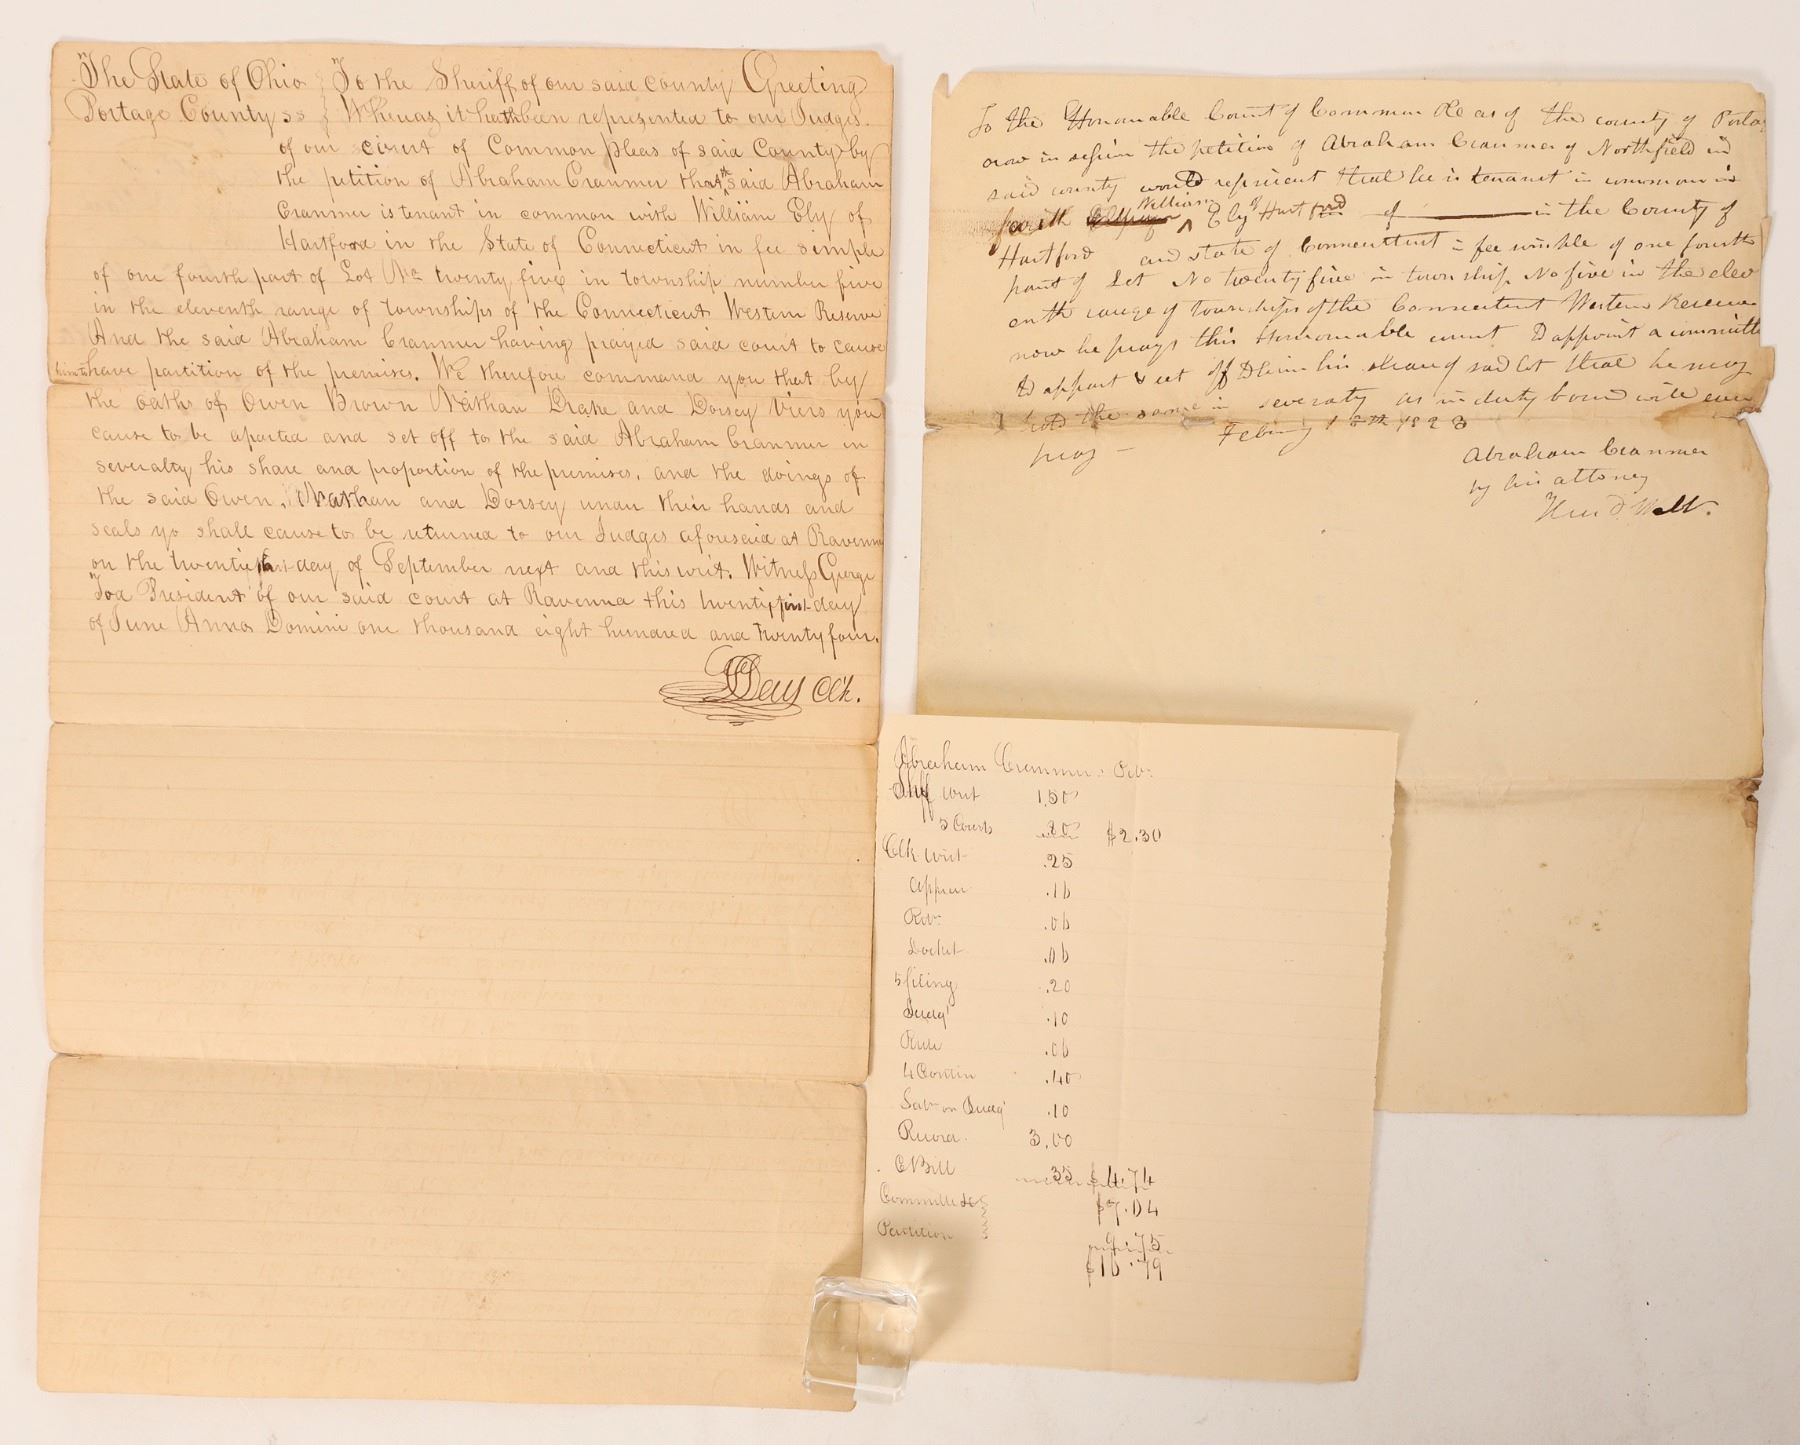 The State of Ohio } To the Sheriff of our said county Greeting
Portage County ss } Whereas it hath been represented to our Judges
of our court of Common pleas of said County by
the petition of Abraham Cranmer that the said Abraham
Cranmer is tenant in common with William Ely of
Hartford in the State of Connecticut in fee simple
of one fourth part of Lot No twenty five in township number five
in the eleventh range of townships of the Connecticut Western Reserve
And the said Abraham Cranmer having prayed said court to cause
him to have partition of the premises. We therefore command you that by
the oaths of Owen Brown Nathan Drake and Dorsey Viers you
cause to be aparted and set off to the said Abraham Cranmer in
severalty his share and proportion of the premises, and the doings of
the said Owen, Nathan and Dorsey under their hands and
seals yo shall cause to be returned to our Judges aforesaid at Ravenna
on the twenty day of September next and this writ. Witness George
Tod President of our said court at Ravenna this twenty first day
of June Anno Domini one thousand eight hundred and twenty four.
Day Clk.
To the Honourable Court of Common Pleas of the county of Porta
now in session the petition of Abraham Cranmer of Northfield in
said county would represent that he is tenant in common in
with William Ely of Hartford of in the County of
Hartford and state of Connecticut in fee simple of one fourth
part of Lot No twenty five in township No five in the elev
enth range of townships of the Connecticut Western Reserve
now he prays this Honourable court to appoint a committe
to appart & set off to him his share of said lot that he may
hold the same in severalty as in duty bound will ever
pray – Feb 18th 1823
Abraham Cranmer
by his attorney
Abraham Cranmer
Shff writ 1.50
5 Courts .80 $2.30
Clk writ .25
Appear .16
Rets .06
Docket .06
5 filing .20
Judgt .10
Rule .06
4 Contin .40
Satn on Judgt .10
Record. 3.00
C Bill .35 $4.74
$7.04
Committee &c }
Partition } 9.75
$16.79